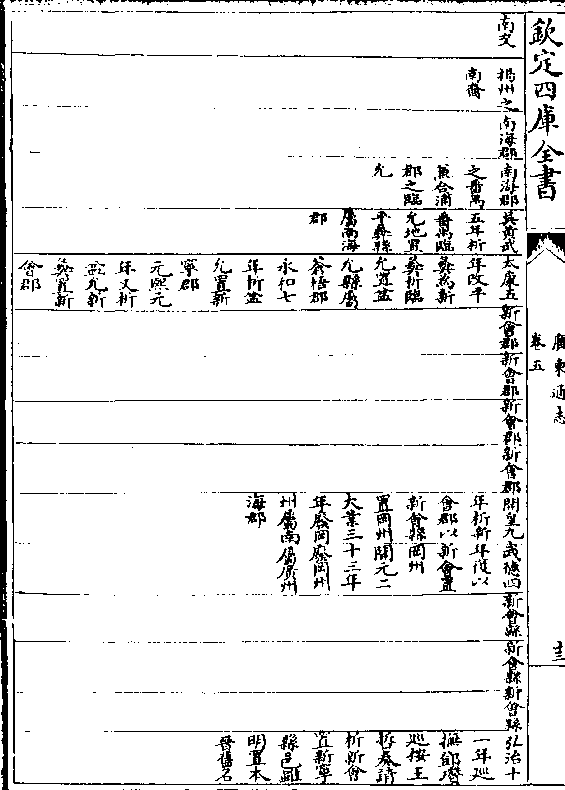 欽定四庫全書
廣東通志
卷五
十三
南交
揚州之
南裔
南海郡
南海郡
之番禺
兼合浦
郡之臨
允
吳黃武
五年析
番禺臨
允地置
平彝縣
屬南海
郡
太康五
年改平
彝為新
彝析臨
允置盆
允縣屬
蒼梧郡
永和七
年析盆
允置新
寧郡
元熙元
年又析
盆允新
彝置新
會郡
新會郡
新會郡
新會郡
新會郡
開皇九
年析新
會郡以
新會縣
置岡州
大業三
年廢岡
州屬南
海郡
武德四
年復以
新會置
岡州
開元二
十三年
廢岡州
屬廣州
新會縣
新會縣
新會縣
弘治十
一年巡
撫鄧
巡按王
哲奏請
析新會
置新寧
縣邑雖
明置本
晉舊名